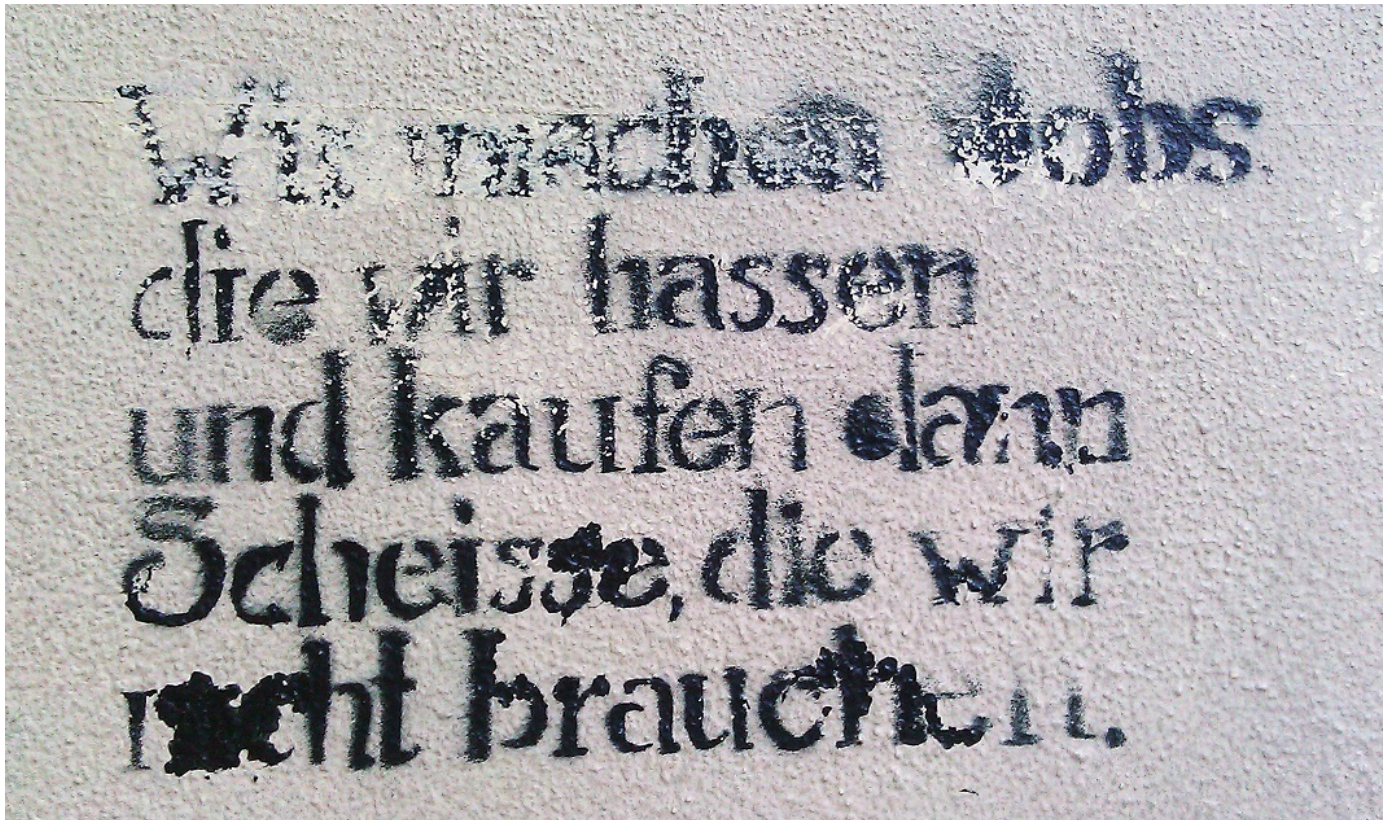 Wir machen Jobs
die wir hassen
und kaufen dann
Scheisse, die wir
nicht brauchen.